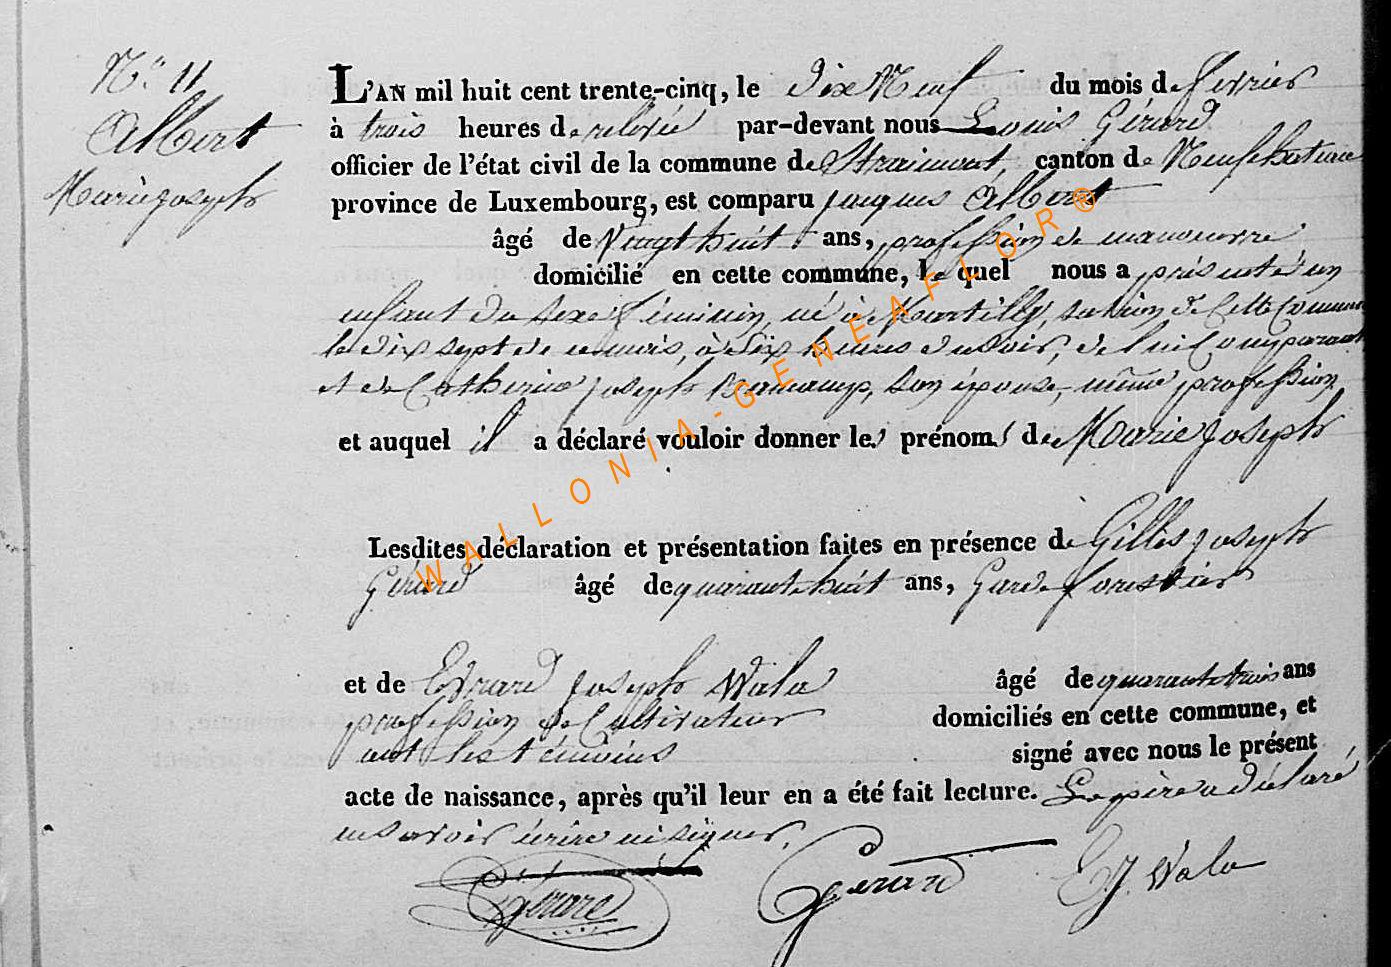 N° 11
Albert
Marie joseph
L'AN mil huit cent trente-cinq, le dix Neuf du mois de fevrier
à trois heures de relevée par-devant nous Louis Gérard
officier de l'état civil de la commune de Straimont canton de Neufchateau
province de Luxembourg, est comparu jacques Albert
âgé de Vingt huit ans, profession de manoeuvre
domicilié en cette commune, le quel nous a présenté un
enfant du sexe féminin, né à Martilly, section de Cette Commune
le dix sept de ce mois, à dix heures du soir, de lui Comparant
et de Catherine joseph son épouse, même profession,
et auquel il a déclaré vouloir donner les prénoms de Marie joseph
Lesdites déclaration et présentation faites en présence de Gilles joseph
Gérard âgé de quarante huit ans, Garde forestier
et de Evrard joseph Wala âgé de quarante trois ans
profession de Cultivateur domiciliés en cette commune, et
ont les témoins signé avec nous le présent
acte de naissance, après qu'il leur en a été fait lecture. Le père a déclaré
ne savoir écrire ni signer,
Gérard Gerard E J. Wala
WALLONIA-GENEAFLOR®